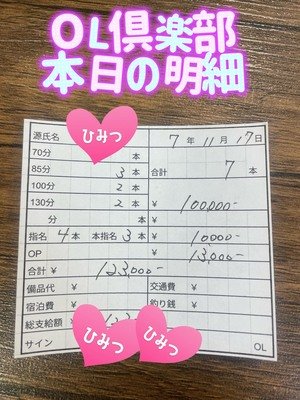 OL倶楽部
本日の明細
源氏名 ひみつ 7年11月17日
70分 本
85分 3本 合計 7本
100分 2本
130分 2本 ¥100,000-
分 本 ¥
指名 4本 本指名 3本 ¥10000-
OP ¥13,000-
合計 ¥123,000-
備品代 ¥ 交通費 ¥
宿泊費 ¥ 釣り銭 ¥
総支給額 ¥
ひみつ ひみつ
サイン OL